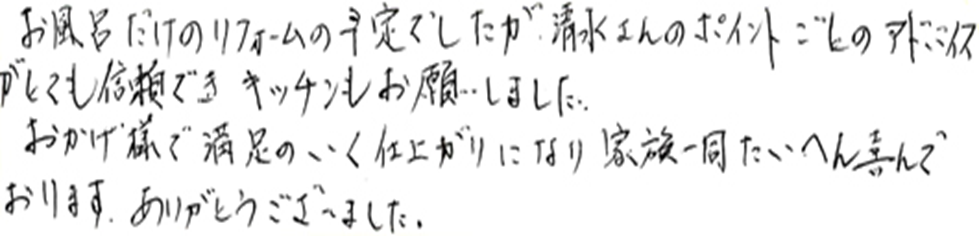 お風呂だけのリフォームの予定でしたが、清水さんのポイントごとのアドバイス
がとても信頼でき キッチンもお願いしました。
おかげ様で満足のいく仕上がりになり 家族一同たいへん喜んで
おります。ありがとうございました。